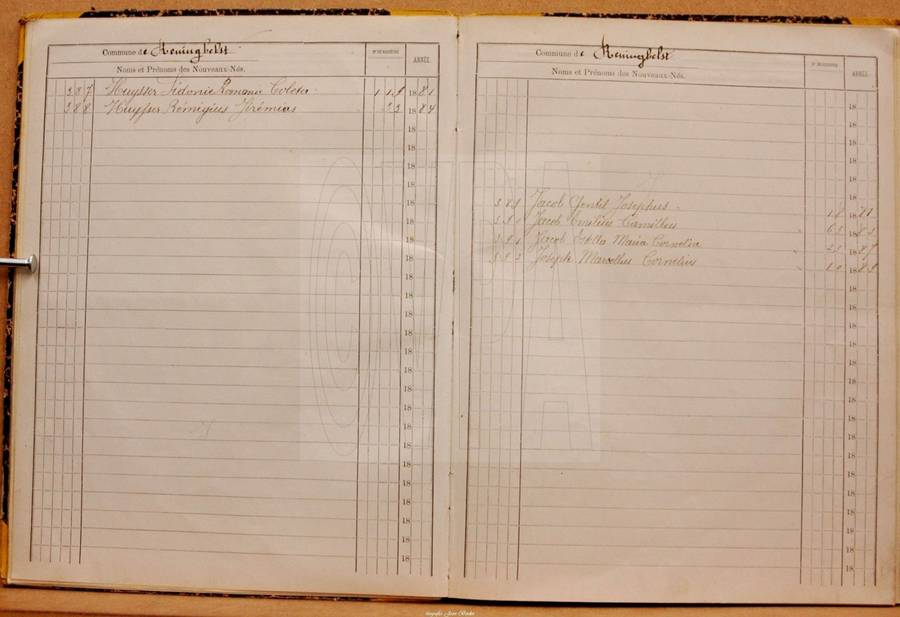 Commune de Reninghelst
Noms et Prénoms des Nouveaux-Nés.
ANNÉE
387 Huysser Sidonie Romania Coleta 119 1881
388 Huysser Rémigius Jérémias 33 1884
18
18
18
18
18
18
18
18
18
18
18
18
18
18
18
18
18
18
18
18
18
18
18
18
Commune de Reninghelst
Noms et Prénoms des Nouveaux-Nés.
ANNÉE
18
18
18
18
18
18
Jacob Gentil Josephus 18
Jacob Emilius Camillus 18
Jacob Stella Maria Cornelia 18
Joseph Marcellus Cornelius 18
18
18
18
18
18
18
18
18
18
18
18
18
18
18
18
18